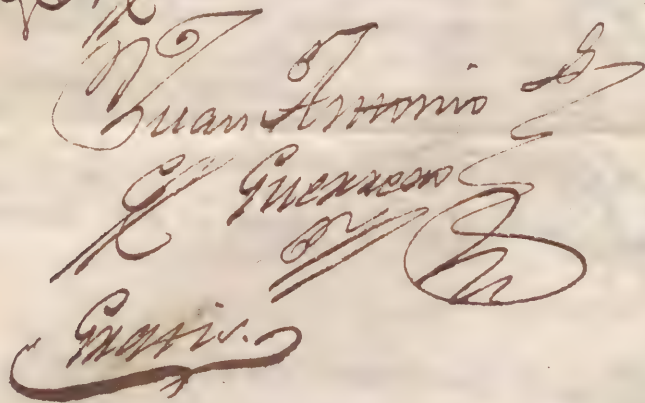 Juan Antonio
Guerrero
Gratis.